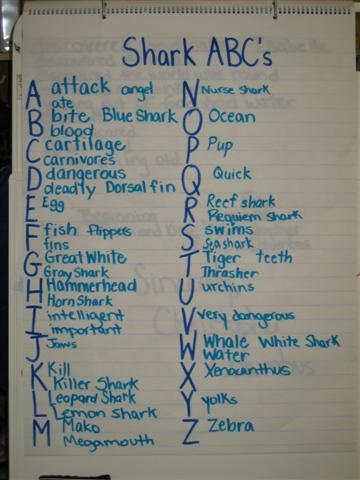 Shark ABC's
A attack angel
ate
B bite Blue Shark
blood
C cartilage
carnivores
D dangerous
deadly Dorsal fin
E Egg
F fish flippers
fins
G Great White
Gray Shark
H Hammerhead
Horn Shark
I intelligent
important
J Jaws
K Kill
Killer Shark
L Leopard Shark
Lemon Shark
M Mako
Megamouth
N Nurse shark
O Ocean
P Pup
Q Quick
R Reef shark
Requiem Shark
S swims
Sea shark
T Tiger teeth
Thrasher
U urchins
V very dangerous
W Whale White Shark
Water
X Xenacanthus
Y yolks
Z Zebra